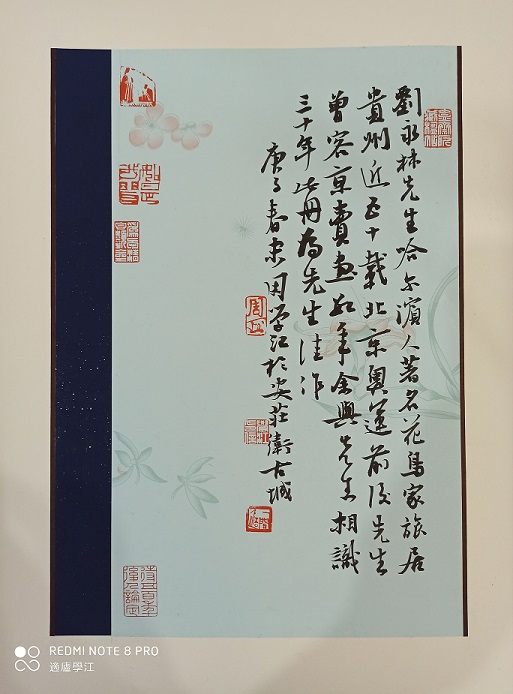 劉永林先生哈尔濱人著名花鳥家旅居
貴州近五十載北京奧運前後先生
曾客京賣畫数年余與先生相識
三十年此冊为先生佳作
庚子春末周学江於安莊衛古城
REDMI NOTE 8 PRO
適廬學江